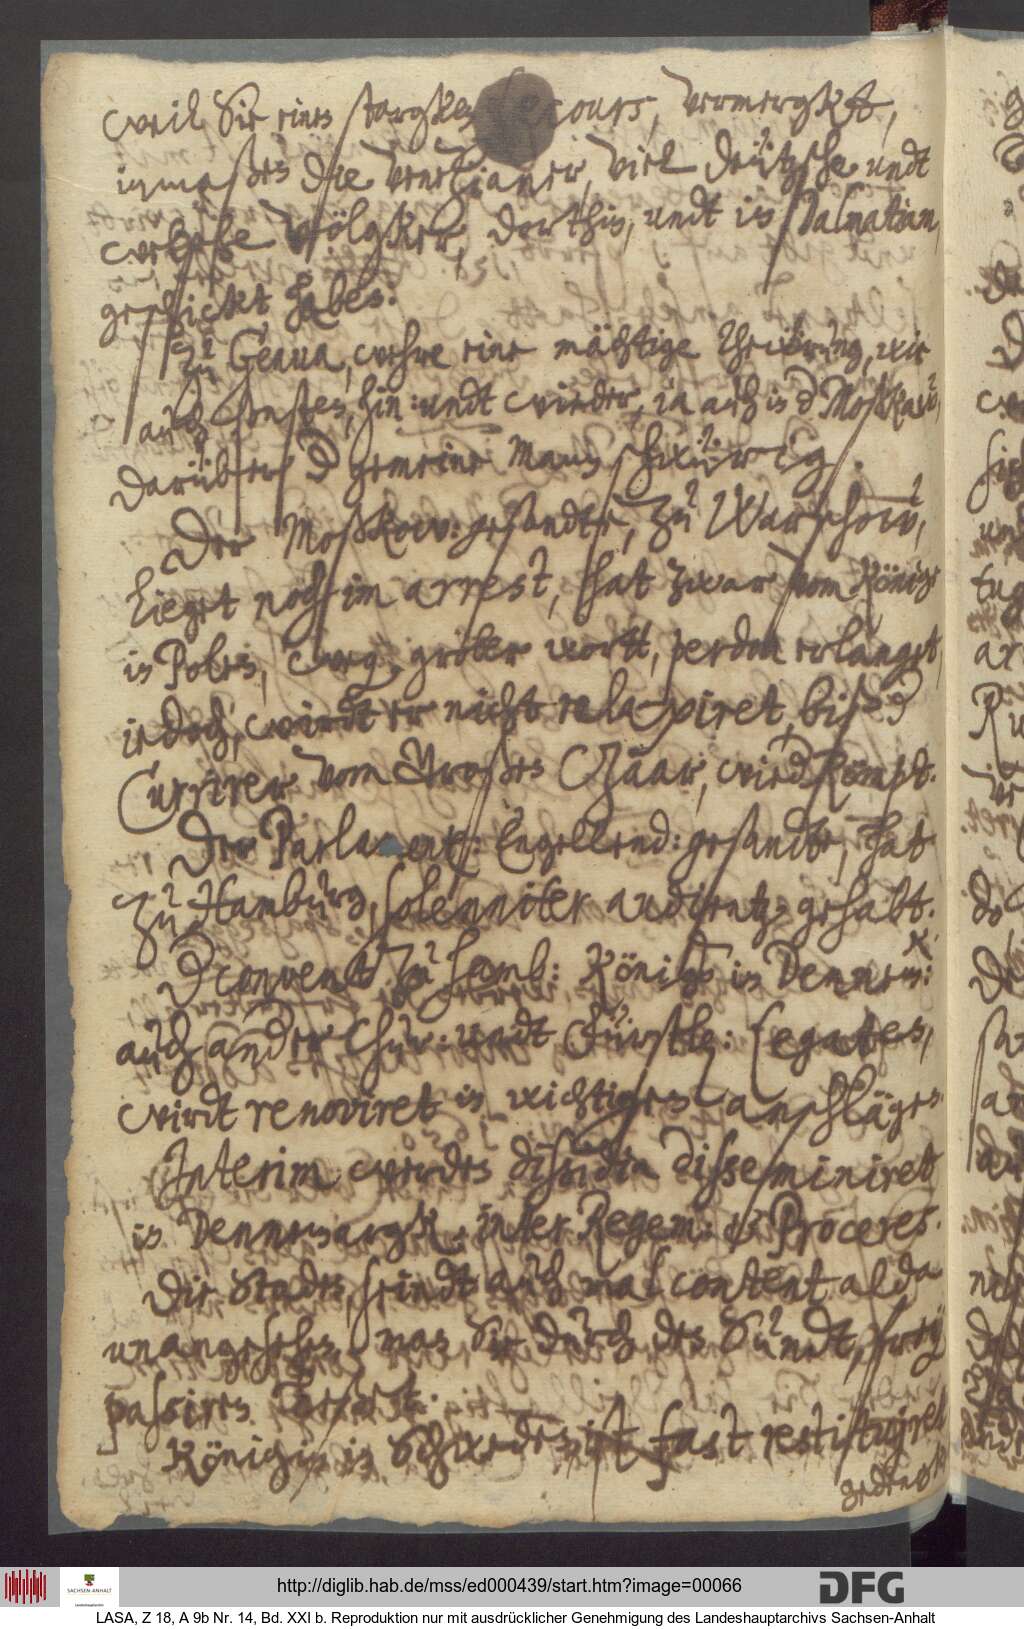 weil Sie einen starcken Secours, vermercket,
inmaßen die Venetianer, viel Deützsche undt
welsche völgker, dorthin, undt in Dalmatiam,
geschickt haben.
Zu Genua, wehre eine mächtige theürung, wie
auch sonsten, hin: undt wieder, ia auch in d Moßkau,
darüber d gemeine Mann schwürig.
Der Moßkow: gesandte, zu Warschow,
lieget noch im arrest, hat zwar vom König
in Polen, weg: grober wortt, perdon erlanget,
iedoch, wirdt er nicht relaxiret, biß d
Currirer vom Großen Czaar, wied kömpt.
Der Parlament: Engellend: gesandte, hat
zu Hamburg, solenniter audientz gehabt.
D convent zu hamb: König: in Dennem:
auch ander Chur: undt Fürstl: Legaten,
wirdt renoviret in wichtigen anschlägen
Interim werden dissidia disseminiret
in Dennemargk, inter Regem: & Proceres.
Die Staden, seindt auch mal content alda
unangesehen, man Sie durch den Sundt, frey
passiren
Königin in Schweden, ist fast restituiret